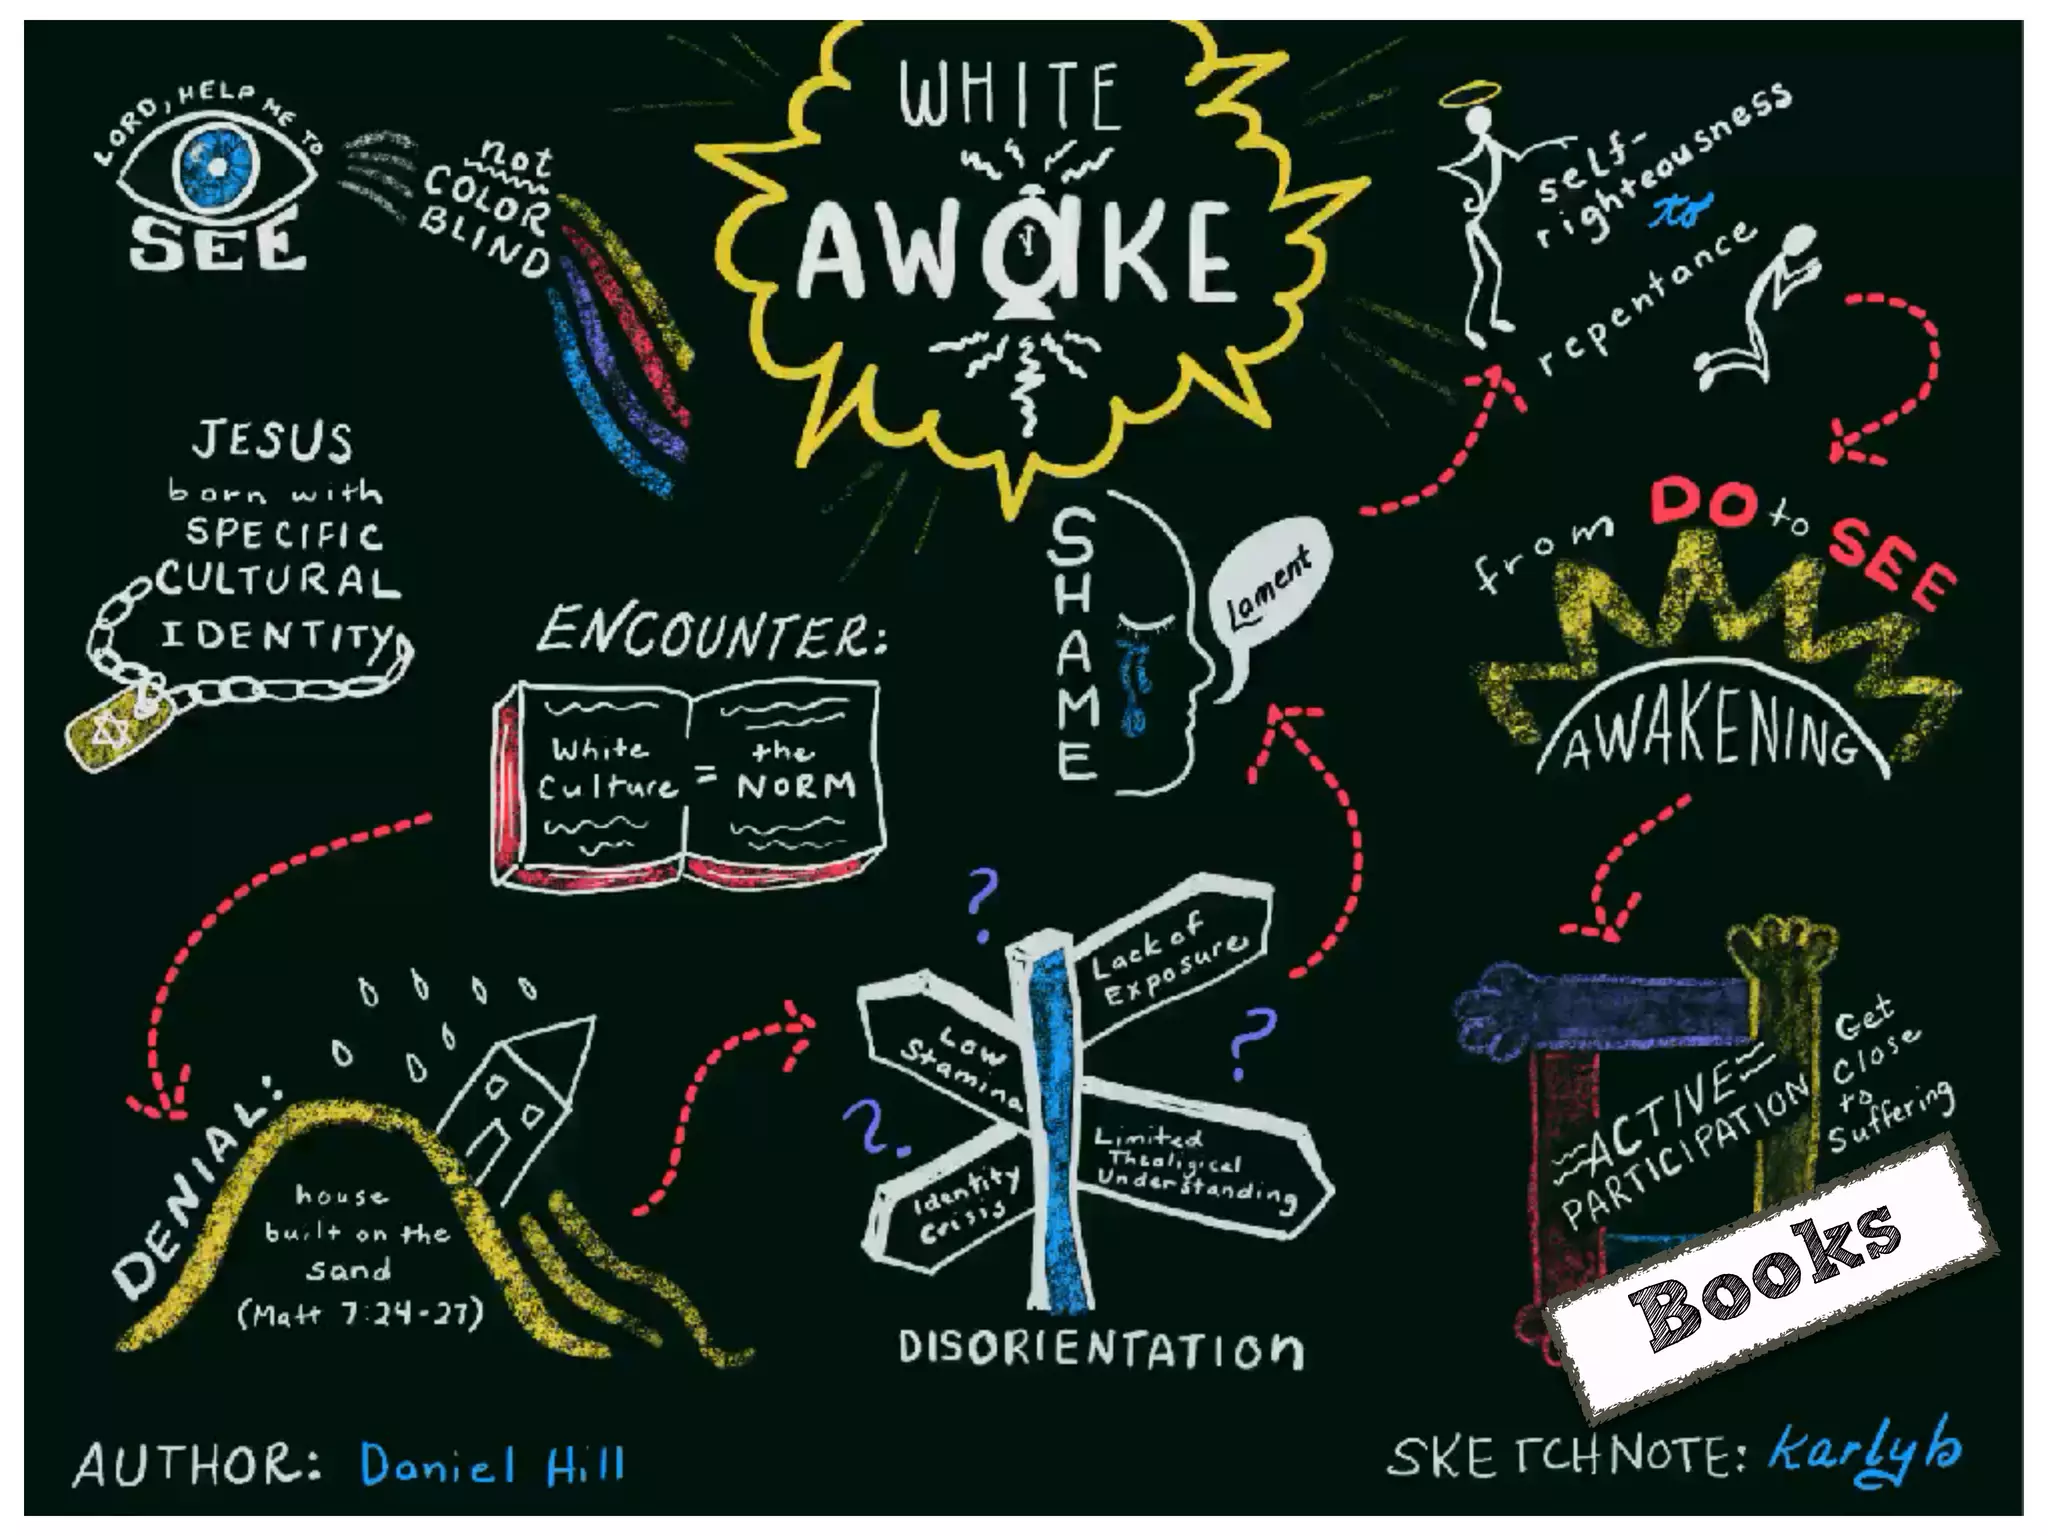 WHITE
AWaKE
LORD, HELP ME TO
SEE
not
COLOR
BLIND
JESUS
born with
SPECIFIC
CULTURAL
IDENTITY
ENCOUNTER:
White
Culture
=
the
NORM
DENIAL:
house
built on the
sand
(Matt 7:24-27)
?
?
?
Lack of
Exposure
Low
Stamina
Limited
Theoligical
Understanding
Identity
Crisis
DISORIENTATION
SHAME
Lament
self-
righteousness
to
repentance
from DO to SEE
AWAKENING
ACTIVE
PARTICIPATION
Get
Close
to
Suffering
Books
AUTHOR: Daniel Hill
SKETCHNOTE: Karlyb